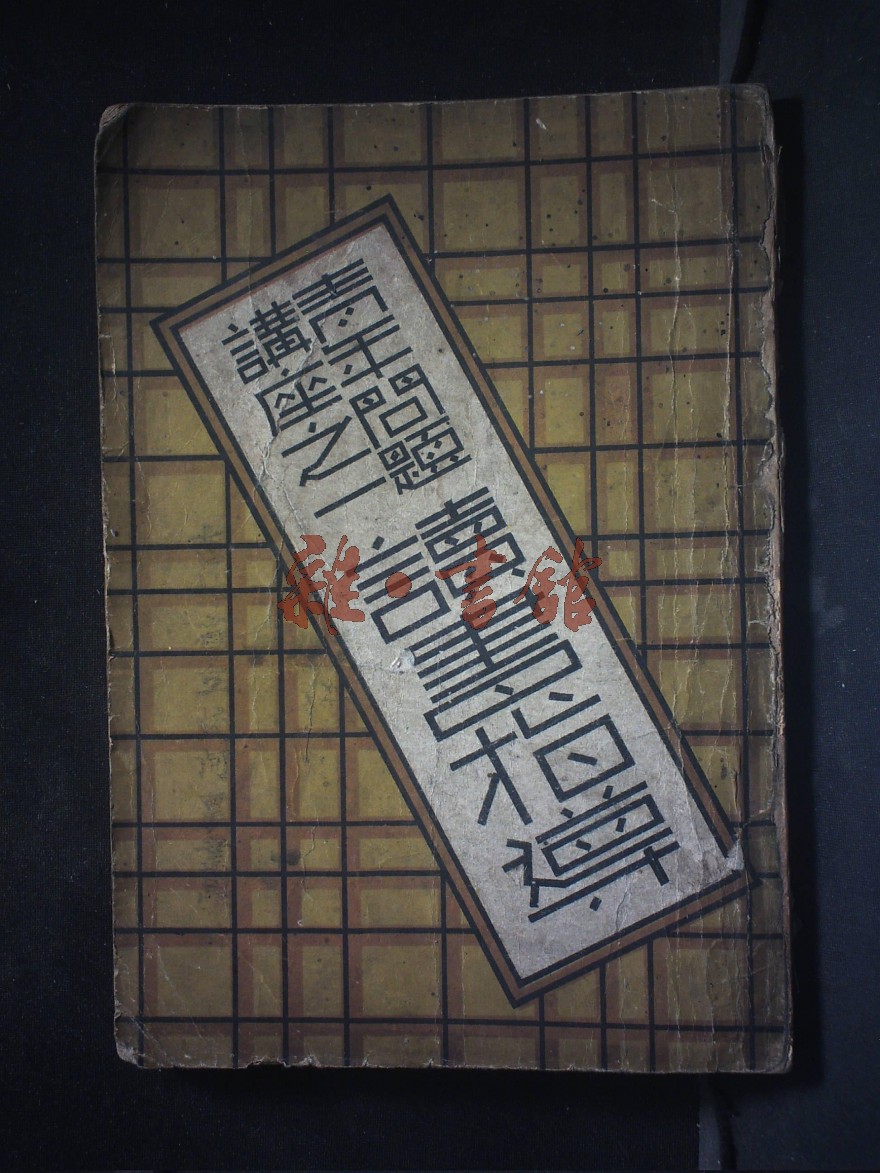 青年問題
講座之一
讀書指導
雜·書館